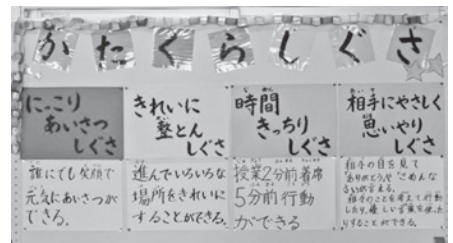 かたくらしぐさ
にっこり
あいさつ
しぐさ
きれいに
整とん
しぐさ
時間
きっちり
しぐさ
相手にやさしく
思いやり
しぐさ
誰にでも笑顔で
元気にあいさつが
できる。
進んでいろいろな
場所をきれいに
することができる。
授業2分前着席
5分前行動
ができる
相手の目を見て
「ありがとう」や「ごめんな
さい」が言える。
相手のことを考えて行動
したり、優しい言葉を使った
りすることができる。